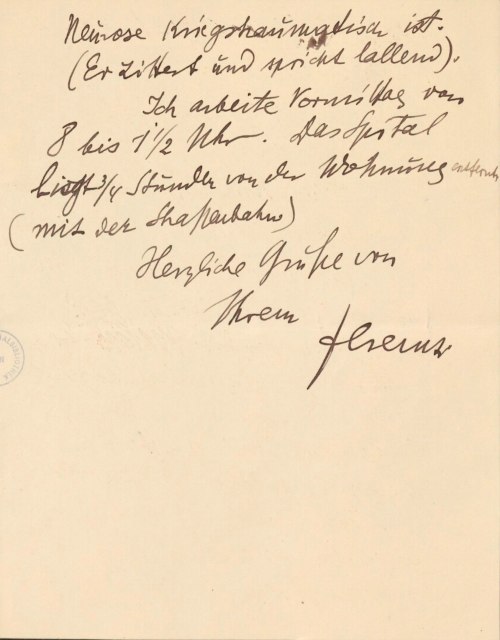 Neurose Kriegstraumatisch ist.
(Er zittert und spricht lallend).
Ich arbeite Vormittag von
8 bis 1 1/2 Uhr. Das Spital
liegt 3/4 Stunden von der Wohnung entfernt
(mit der Straßenbahn)
Herzliche Grüße von
Ihrem
Ferenczi